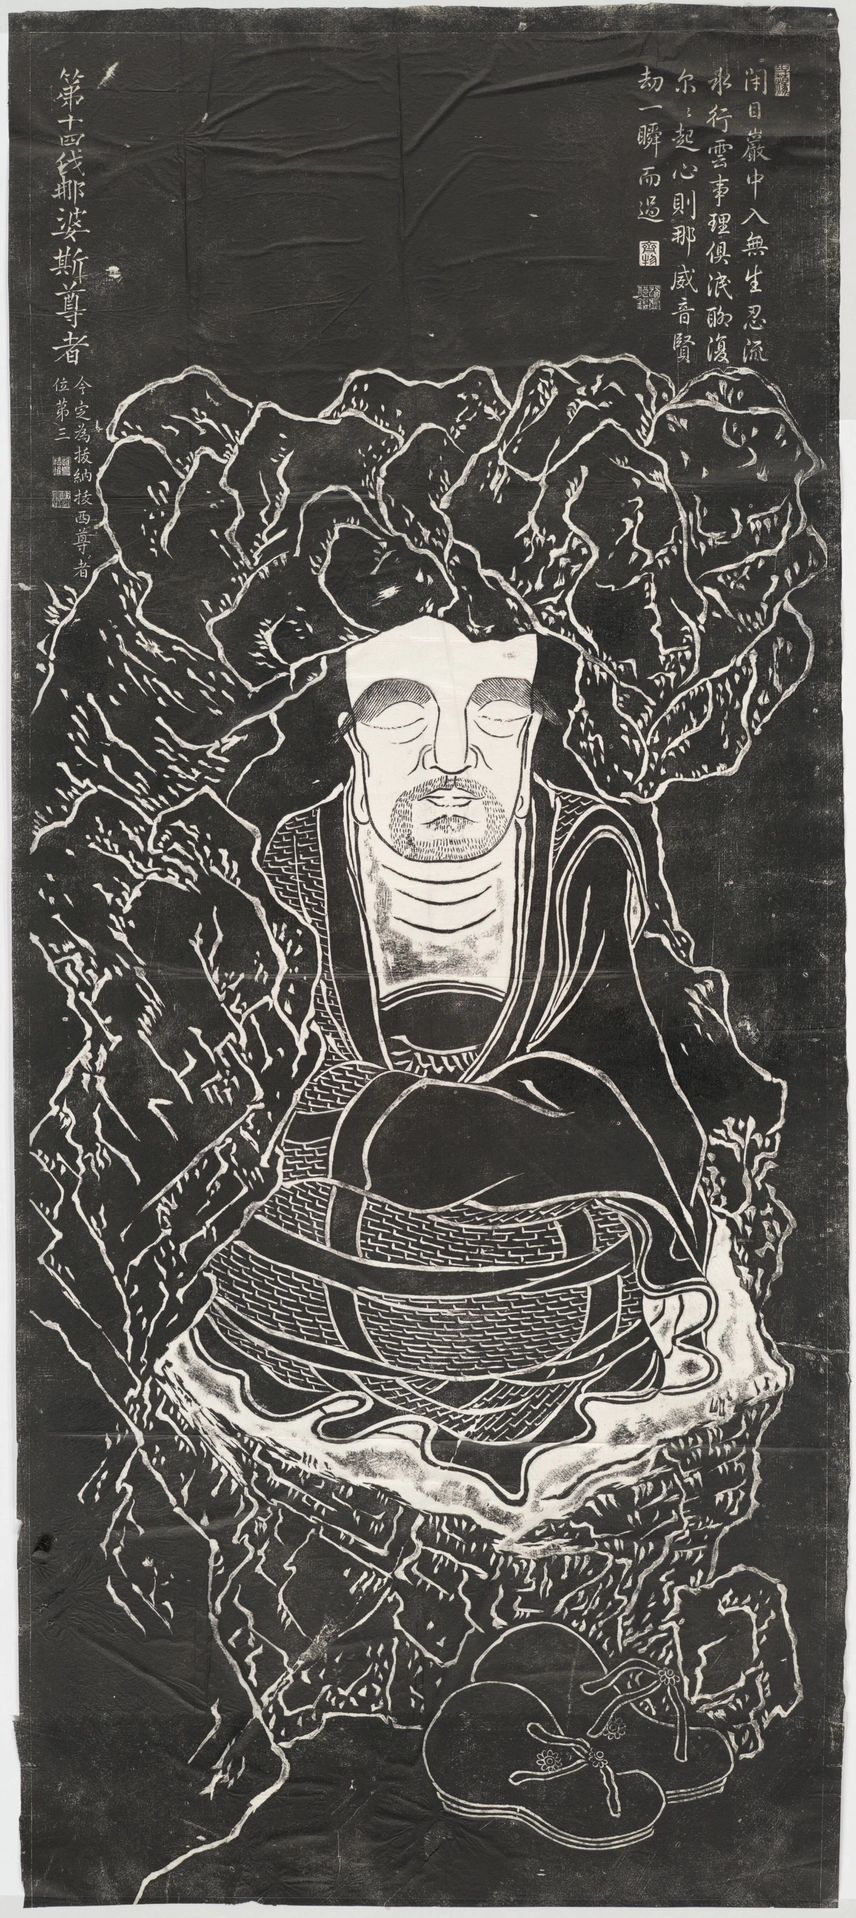 閉目巖中入無生忍流
水行雲事理俱泯聊復
尔〻起心則那威音賢
劫一瞬而過
第十四伐那婆斯尊者
今定為拔納拔西尊者
位第三